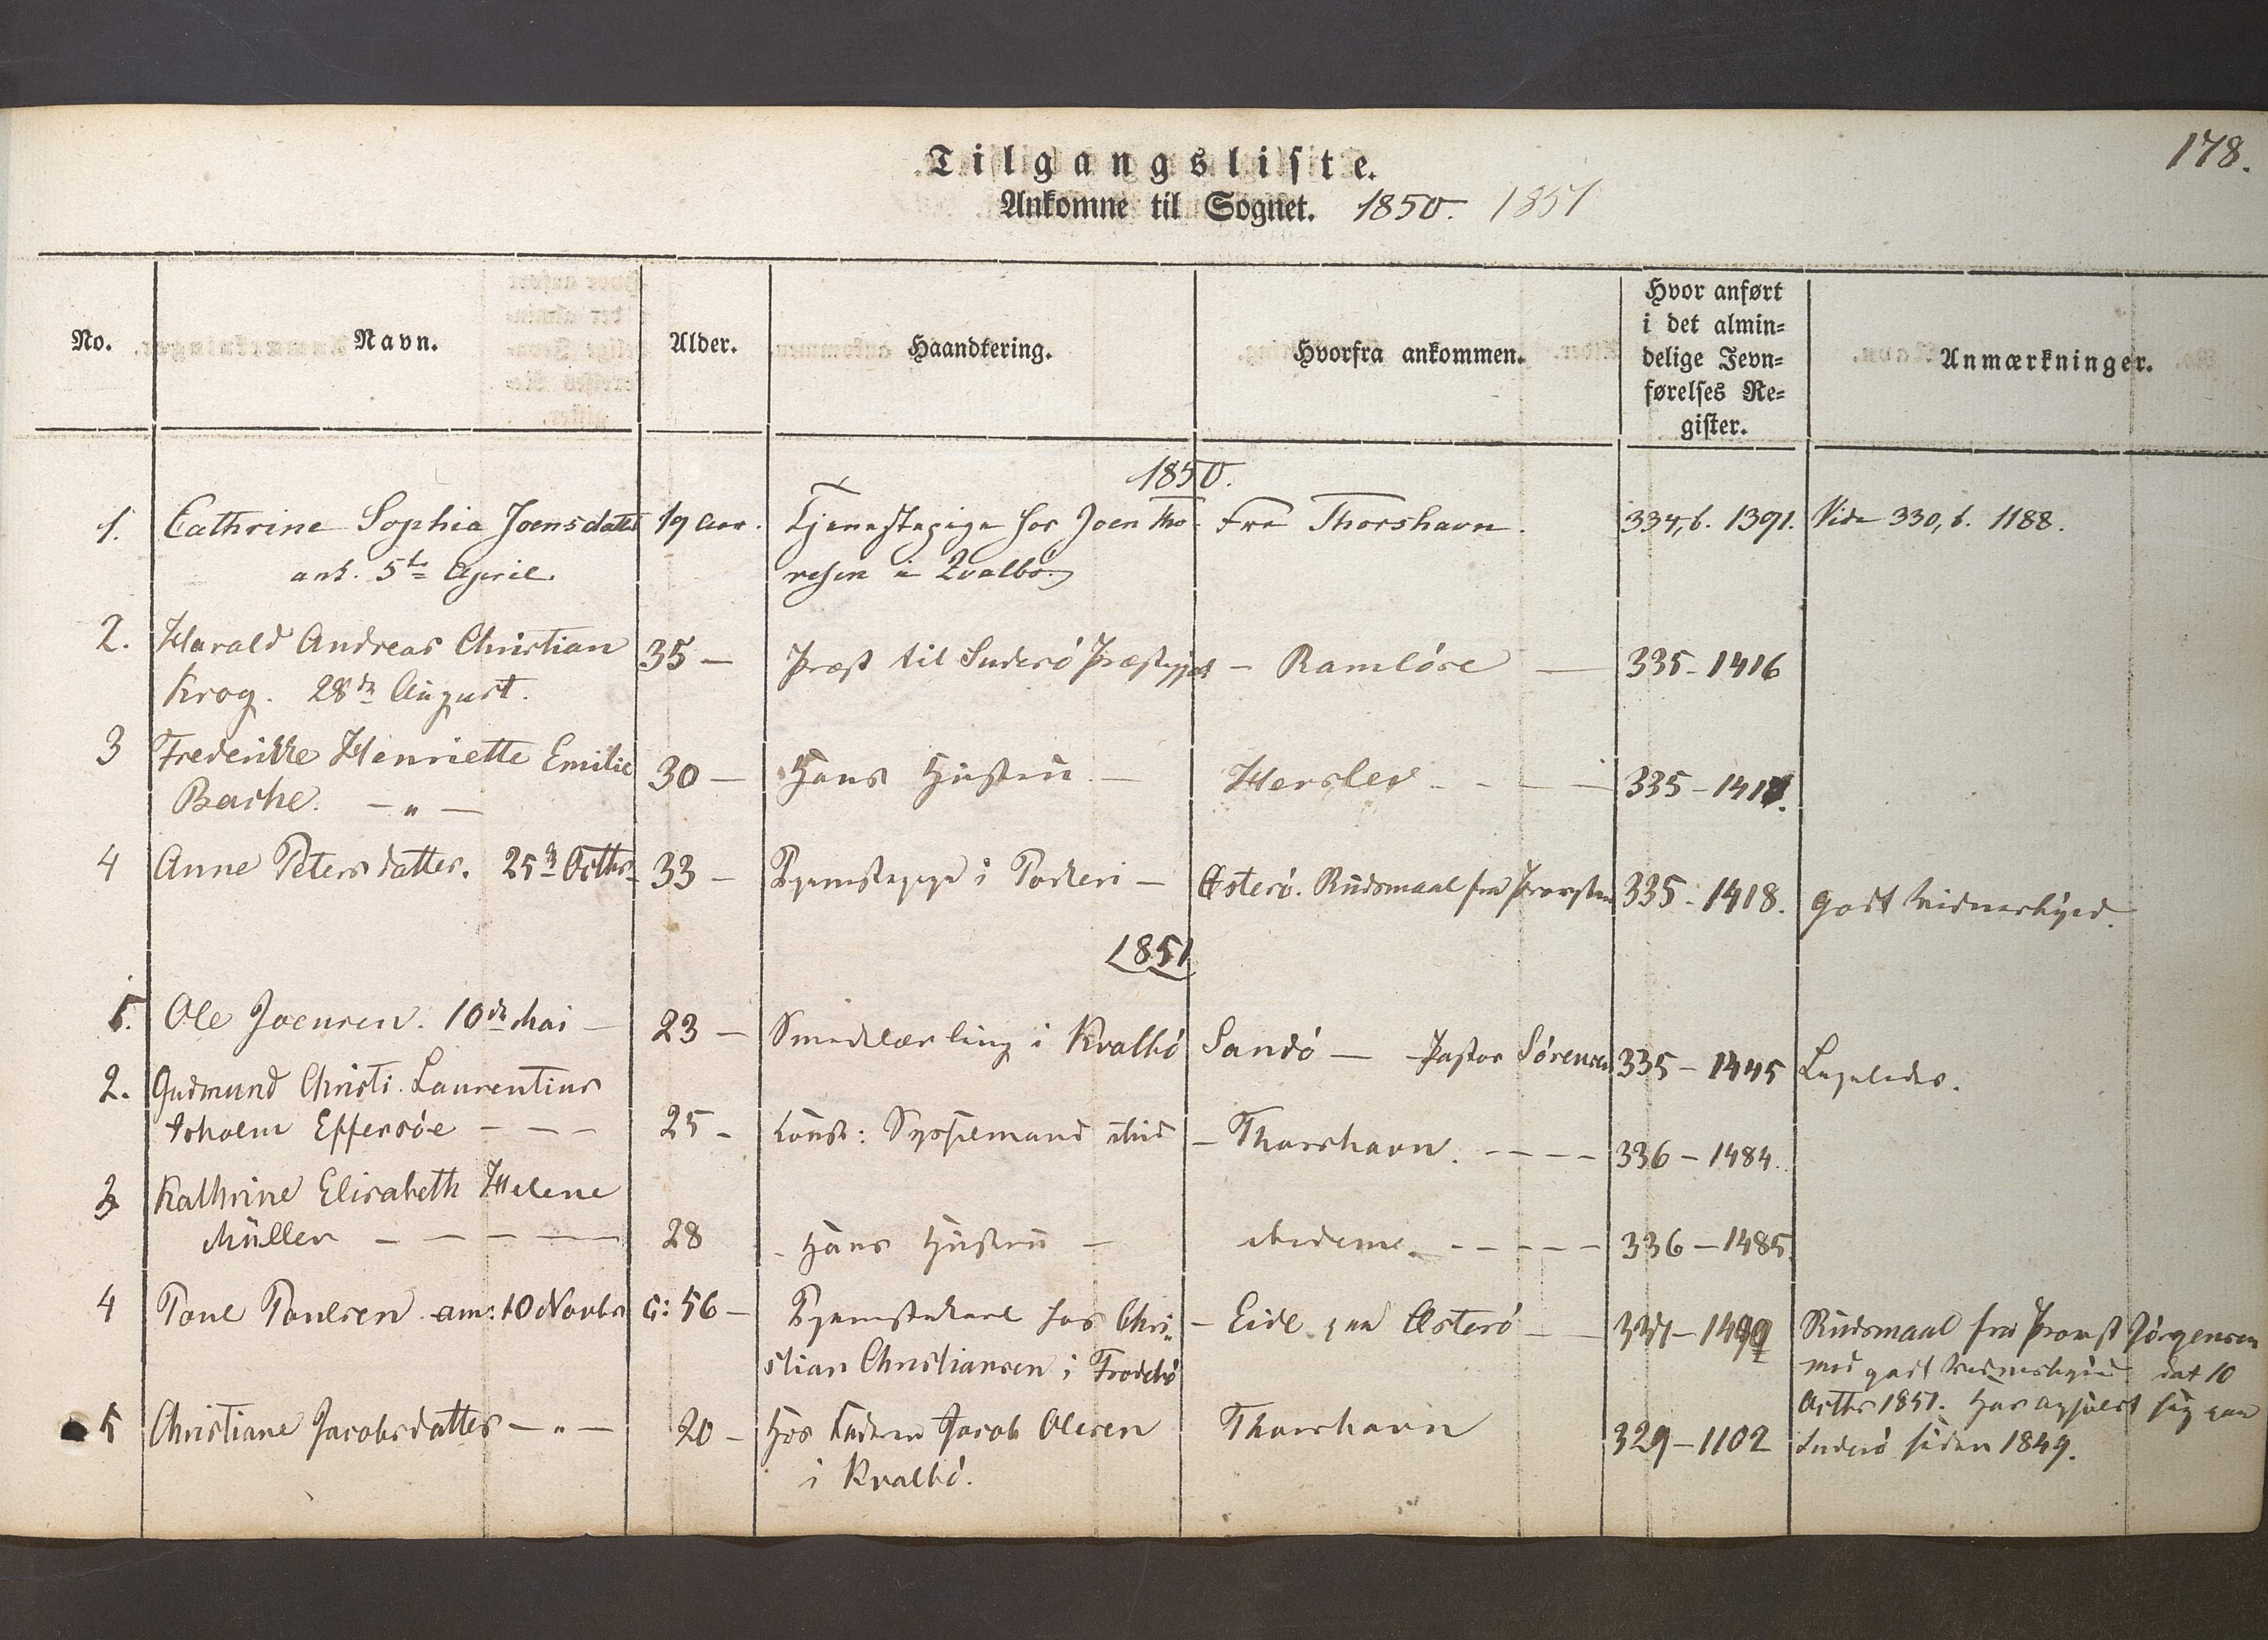 178.
Tilgangsliste.
Ankomne til Sognet. 1850. 1851
No. Navn. Alder. Haandtering. Hvorfra ankommen. Hvor anført i det almin= delige Jevn= førelses Re= gister. Anmærkninger.
1850.
1. Cathrine Sophia Joensdatter 19 Aar. Tjenestepige hos Joen Tho- Fra Thorshavn. 334,b. 1391. Vide 330,b. 1188.
ank. 5te April resen i Qvalbø
2. Harald Andreas Christian 35 — Præst til Suderö Præstegjeld — Ramløse — 335-1416
Krog. 28de August.
3 Frederikke Henriette Emilie 30 — Hans Hustru — Herslev - - - 335-1417.
Bache. — " —
4 Anne Petersdatter. 25de Octbr. 33 — Tjenestepige i Porkeri — Østerö. Skudsmaal fra Provsten 335-1418. godt Vidnesbyrd.
1851
1. Ole Joensen. 10de Mai — 23 — Smedelærling i Kvalbö Sandö — Pastor Sörensen 335-1445 Ligeledes.
2. Gudmund Christi. Laurentius
Isholm Effersöe - - - 25 - const: Sysselmand ibid — Thorshavn. - - - - 336-1484.
3 Kathrine Elisabeth Helene
Müller - - - - 28 - Hans Hustru — ibidem - - - - 336-1485.
4 Poul Poulsen am: 10 Novbr c: 56 — Tjenestekarl hos Chri- — Eide paa Østerö — 337-1499 Skudsmaal fra Provst Jørgensen
stian Christiansen i Frodebö med godt Vidnesbyrd dat 10
Octbr 1851. Har opholdt sig paa
5 Christiane Jacobsdatter — " — 20 - Hos Faderen Jacob Olesen Thorshavn 329-1102 Suderö siden 1849.
i Kvalbö.